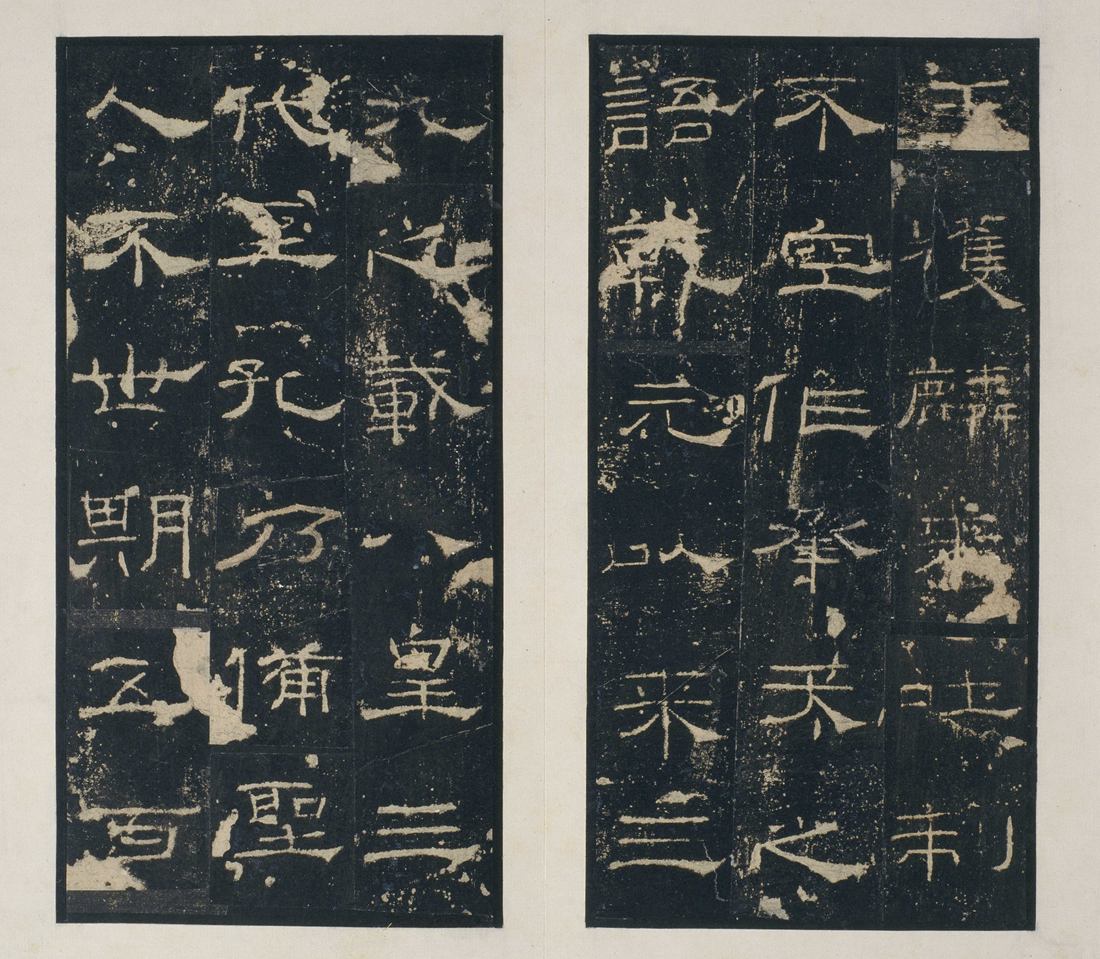 王獲麟來吐制
不空作承天之
語乾元以來三
九之載八皇三
代至孔乃備聖
人不世期五百